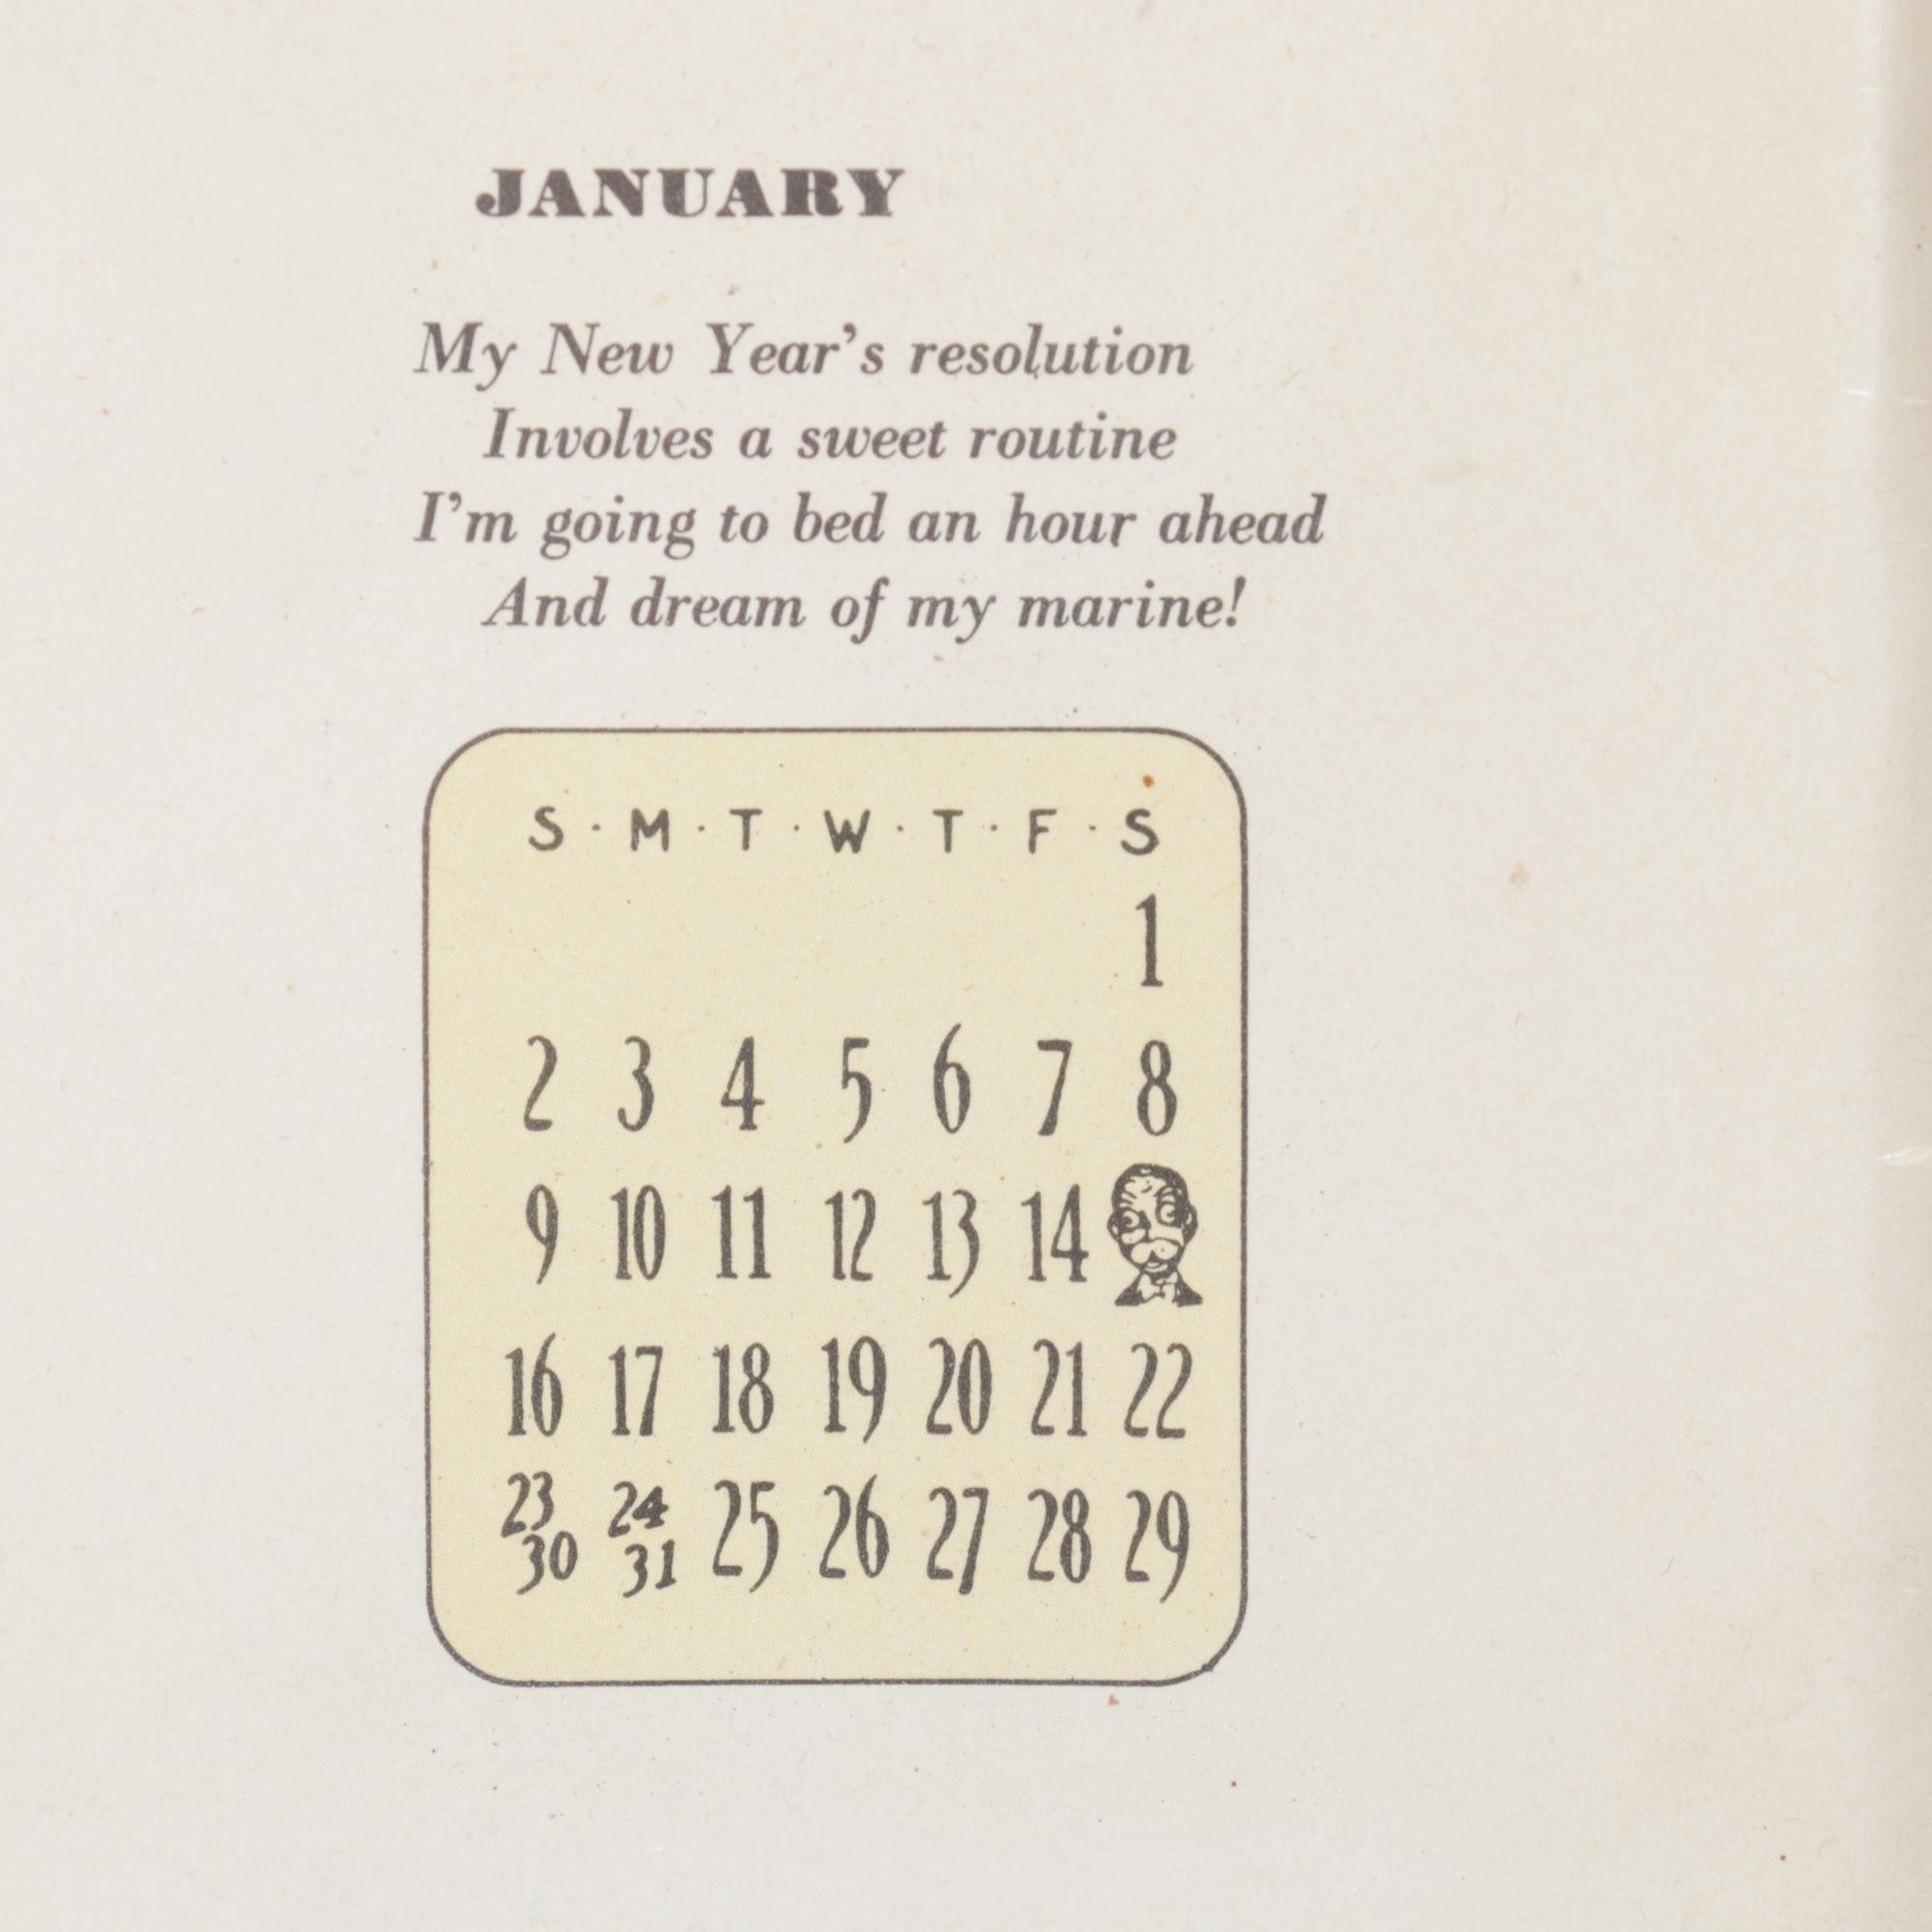 JANUARY
My New Year's resolution
Involves a sweet routine
I'm going to bed an hour ahead
And dream of my marine!
S · M · T · W · T · F · S
1
2 3 4 5 6 7 8
9 10 11 12 13 14
16 17 18 19 20 21 22
23 24 25 26 27 28 29
30 31